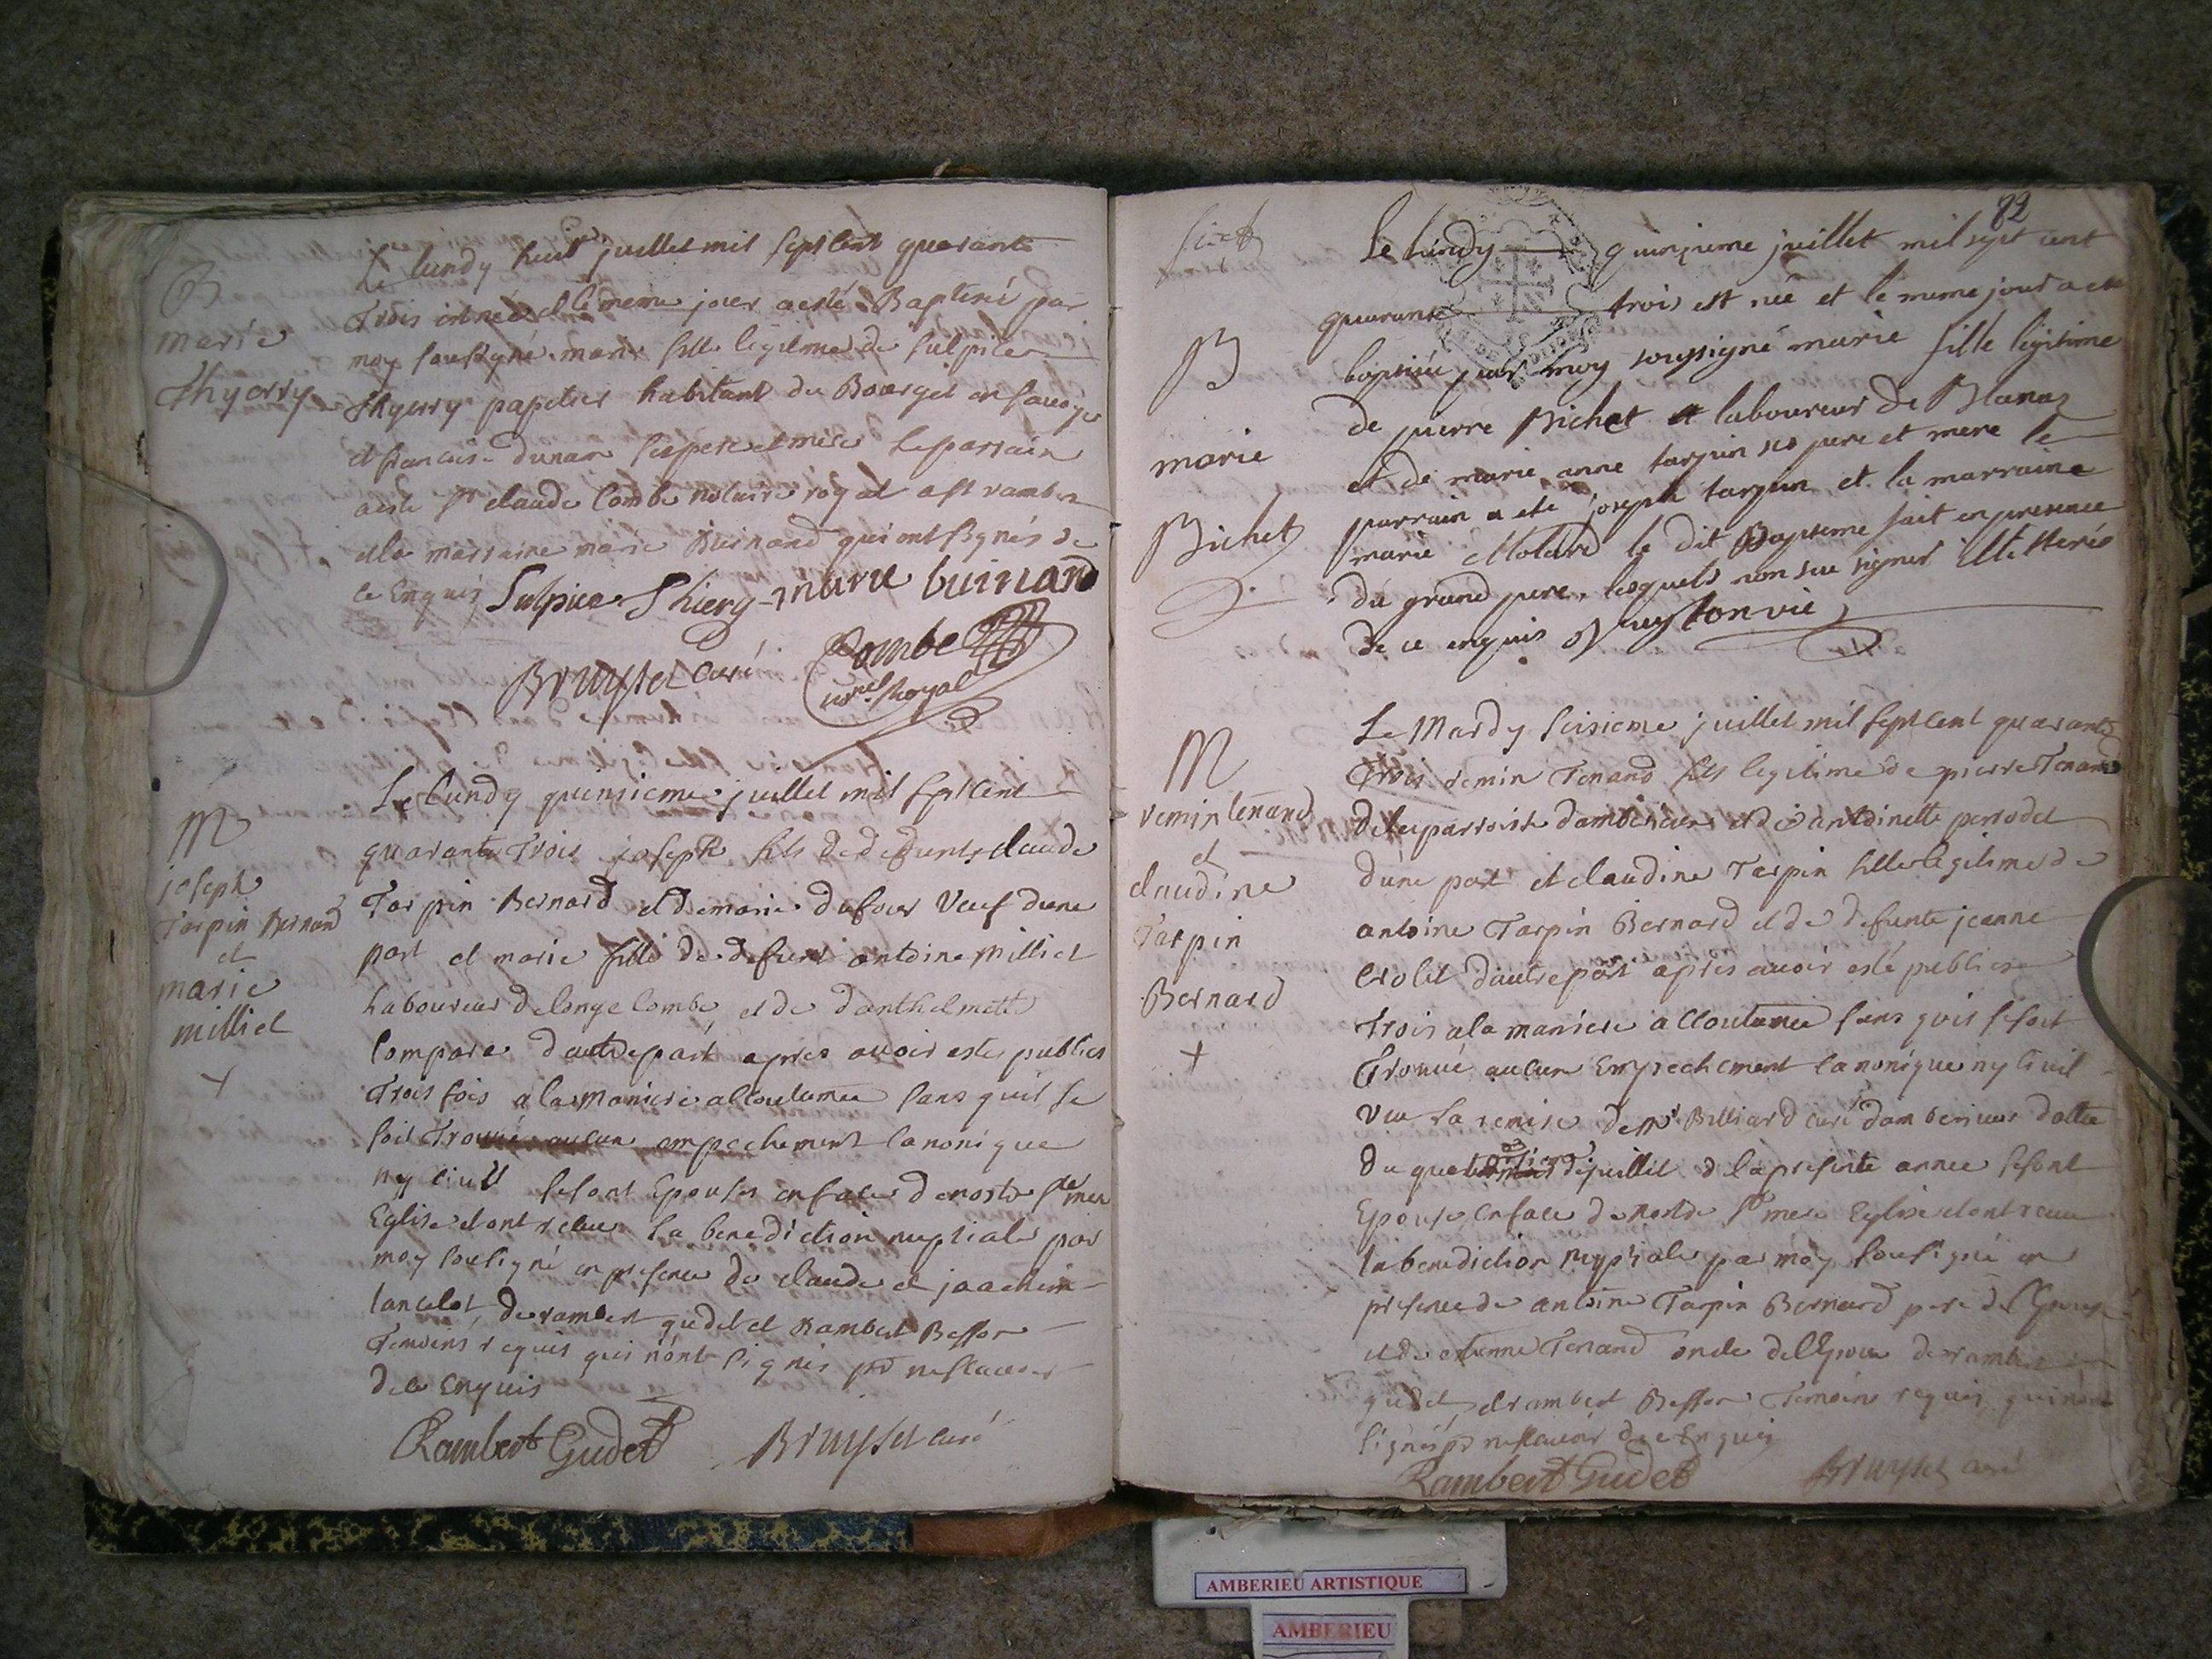 B
marie
Thyerry
Le lundy huit juillet mil sept cent quarante
Trois est née et le meme jour a esté Baptisé par
moy sousigné marie fille legitime de sulpice
Thyerry papetier habitant du Bourget en sauoye
et francoise dunan ses pere et mere le parrain
a este sr claude Combe notaire royal a st rambert
et la marraine marie Buinand qui ont signés de
ce Enquis Sulpice Thiery marie buinand
Bruyset curé Combe
nore Royal
M
joseph
Tarpin Bernard
et
marie
milliet
+
Le Lundy quinsieme juillet mil sept Cent
quarante Trois joseph fils de defunts claude
Tarpin Bernard et de marie dufour Veuf dune
part et marie fille de defunt antoine milliet
Laboureur de longe Combe et de danthelmette
Compare dautre part apres auoir estes publies
Trois fois a la maniere accoutumee sans quil se
soit Trouué aucun empechement Canonique
ny Ciuil se sont Epouses en face de nostre ste mere
Eglise et ont receu la benediction nuptiale par
moy sousigné en presence de claude et joachim
lancelot de rambert gudet et Rambert Besson
Temoins requis qui nont signes pr ne scauoir
de ce Enquis
Rambert Gudet Bruyset curé
82
Le lundy quinzieme juillet mil sept cent
quarante trois est née et le meme jour a ete
B
marie
Bichet
baptisée par moy soussigné marie fille legitime
de pierre Bichet et laboureur de Blanas
et de marie anne tarpin ses pere et mere le
parrain a ete joseph tarpin et la marraine
marie Molard le dit Bapteme fait en presence
du grand pere, lesquels non sue signer illetterés
de ce enquis
M
remin tenand
et
claudine
Tarpin
Bernard
+
Le Mardy seisieme juillet mil sept Cent quarante
Trois remin Tenand fils legitime de pierre Tenand
de la parroisse damberieu et de antoinette perrodet
dune part et claudine Tarpin fille legitime de
antoine Tarpin Bernard et de defunte jeanne
Crolet dautre part apres auoir esté publies
Trois a la maniere accoutumee sans quil se soit
Trouué aucun Empechement Canonique ny Ciuil
Vu la remise de mr Billiard curé damberieux datte
du quatorsieme de juillet de la presente annee se sont
Epouse en face de nostre ste mere Eglise et ont receu
la benediction nuptiale par moy sousigné en
presence de antoine Tarpin Bernard pere de lEpouse
et de etienne Tenand oncle de lEpoux de rambert
gudet et rambert Besson Temoins requis qui nont
signés pr ne scauoir de ce Enquis
Rambert Gudet Bruyset curé
AMBERIEU ARTISTIQUE
AMBERIEU